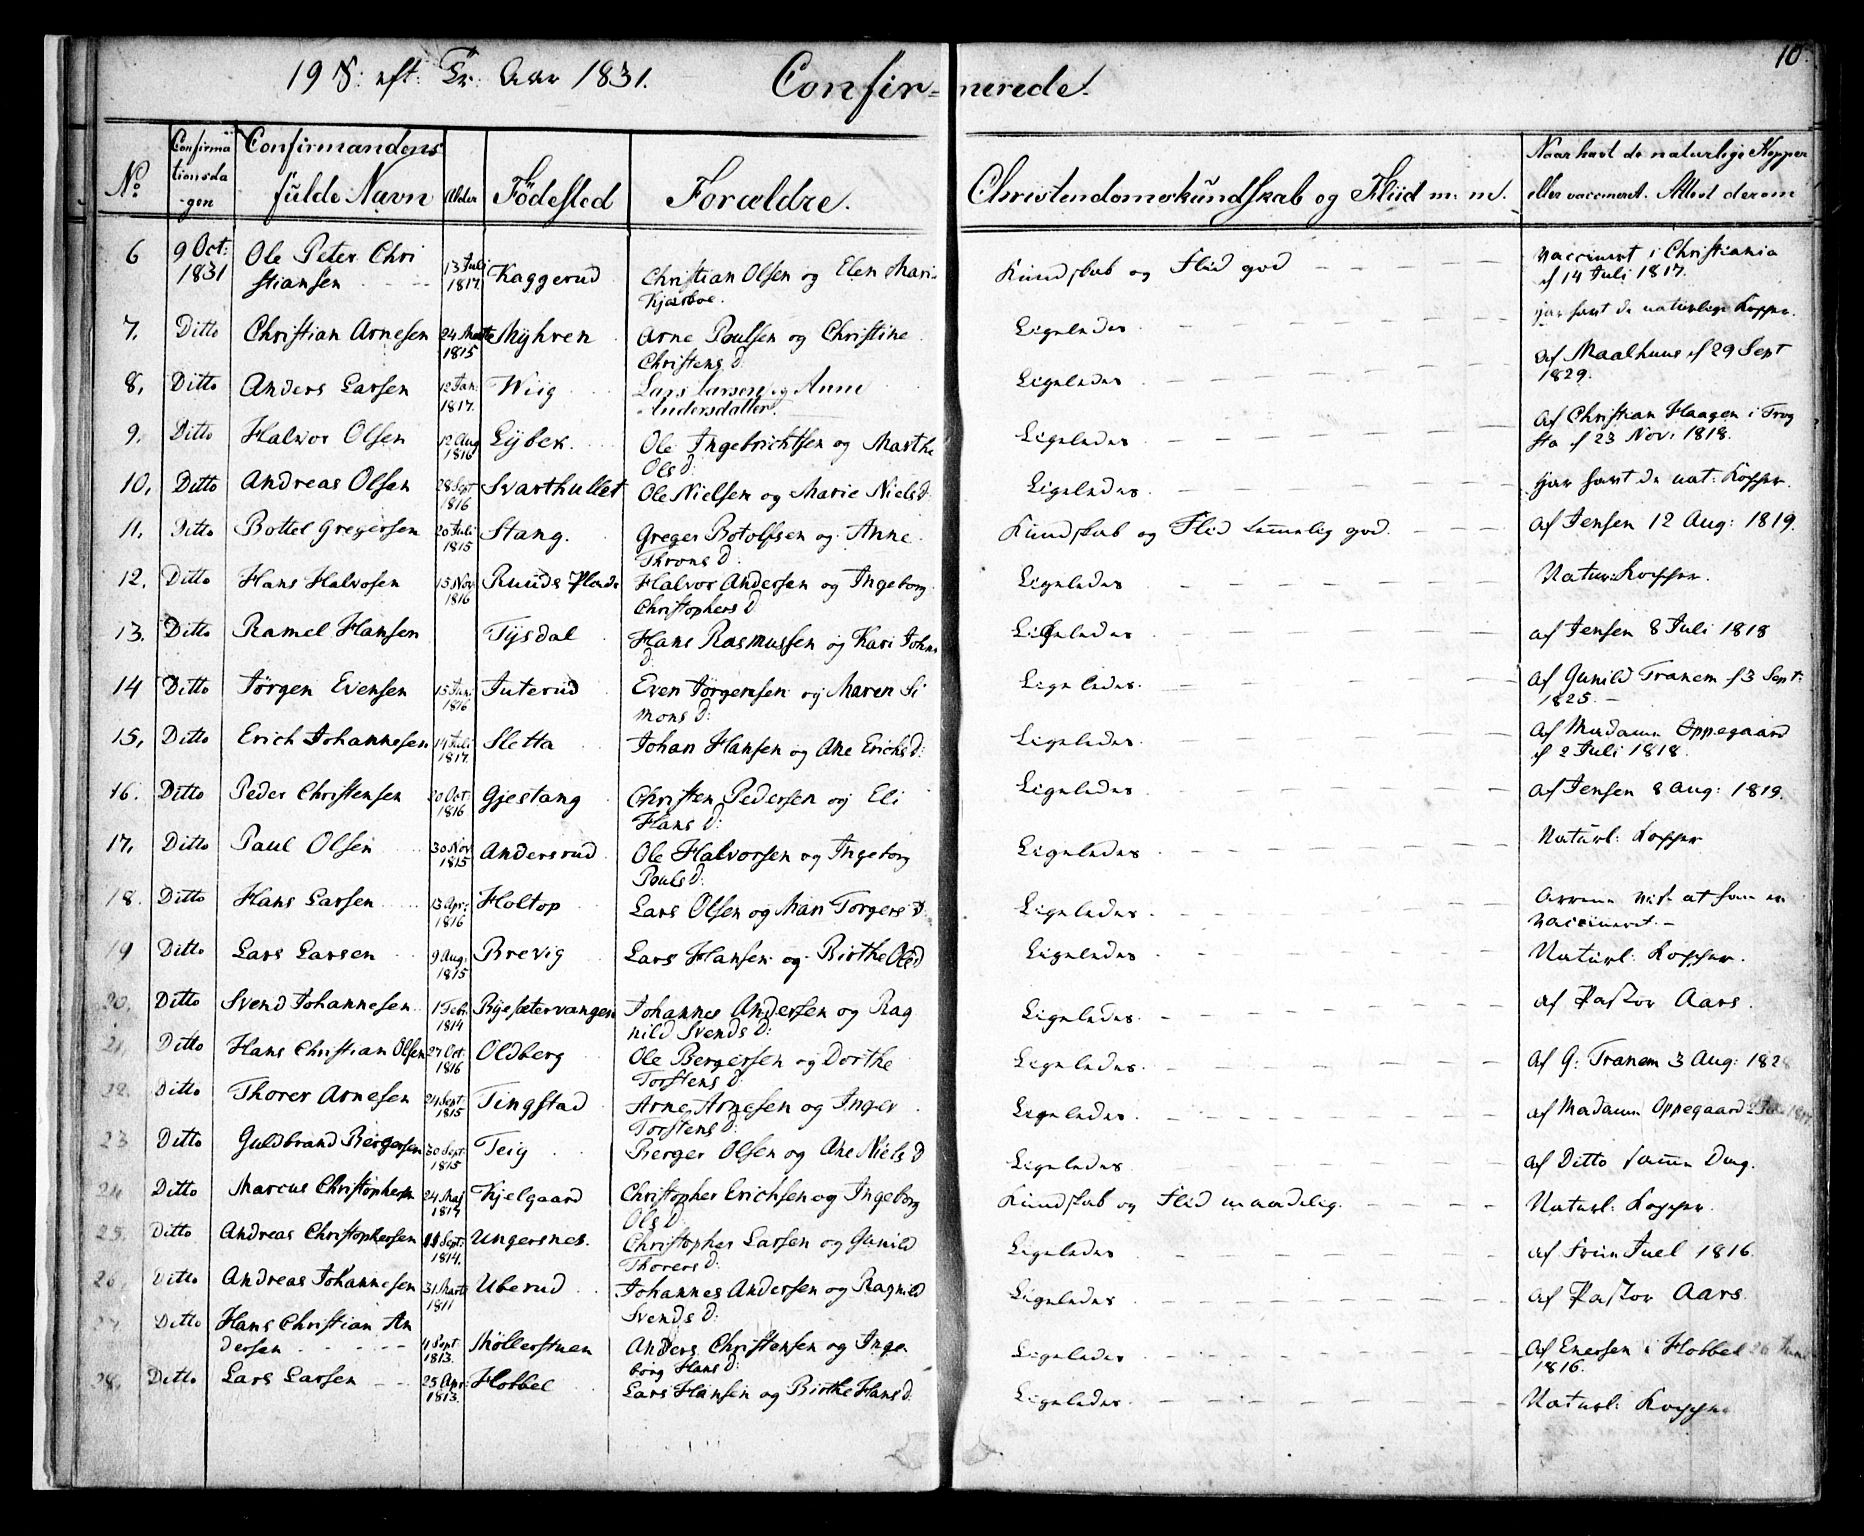 19 S: eft: Tr. Aar 1831. Confir=merede.
10.
No Confirmationsdagen Confirmandens fulde Navn Alder Födested Forældre. Christendomskundskab og Fliid m: m. Naar havt de naturlige Kopper eller vaccineret. Attest derom
6 9 Oct: 1831 Ole Peter Chri 13 Juli 1817. Kaggerud Christian Olsen og Elen Mari Kundskab og Flid god vaccinert i Christiania
stiansen Kjærboe. d 14 Juli 1817.
7. Ditto Christian Arnesen 24 Marts 1815 Myhren Arne Poulsen og Christine Ligeledes har havt de naturlige Kopper.
Christens d:
8. Ditto Anders Larsen 12 Jan: 1817. Wiig Lars Larsen og Anne Ligeledes af Maalhuus d 29 Sept
Andersdatter. 1829.
9. Ditto Halvor Olsen 12 Aug 1816 Lybek. Ole Ingebrichtsen og Marthe Ligeledes af Christian Haagen i Trøg
Ols d: sta d 23 Nov: 1818.
10. Ditto Andreas Olsen 28 Sept 1816 Svarthullet Ole Nielsen og Marie Niels d. Ligeledes har havt de nat: Kopper.
11. Ditto Bottel Gregersen 20 Juli 1815 Stang. Greger Botolfsen og Anne Kundskab og Flid temmelig god. af Jensen 12 Aug: 1819.
Throns d:
12. Ditto Hans Halvosen 15 Nov 1816 Ruuds Halvor Andersen og Ingeborg Ligeledes Natur: Kopper.
Christophers d.
13. Ditto Ramel Hansen Tysdal Hans Rasmussen og Kari Johns Ligeledes af Jensen 8 Juli 1818
d
14 Ditto Jörgen Evensen 15 Jun: 1816 Juterud Even Jörgensen og Maren Si Ligeledes. af Gunild Tranem d 3 Sept:
mons d: 1825. –
15. Ditto Erich Johannesen 14 Juli 1817. Sletta Johan Hansen og Ane Erichs d: Ligeledes. af Madamm Oppegaard
d 2 Juli 1818.
16. Ditto Peder Christensen 20 Oct: 1816 Gjestang Christen Pedersen og Eli Ligeledes af Jensen 8 Aug: 1819.
Hans d:
17. Ditto Paul Olsen 30 Nov 1815 Andersrud Ole Halvorsen og Ingeborg Ligeledes Naturl: Kopper
Pouls d:
18. Ditto Hans Larsen 13 Apr: 1816 Holtop Lars Olsen og Mari Torgers d: Ligeledes at han er
vaccineret. –
19 Ditto Lars Larsen 9 Aug: 1815 Brevig Lars Hansen og Birthe Ols d Ligeledes Naturl: Kopper.
20. Ditto Svend Johannesen 1 Feb: 1814 Ryesætervangen Johannes Andersen og Rag Ligeledes. af Pastor Aars.
nild Svends d:
21. Ditto Hans Christian Olsen 27 Oct: 1816 Oldberg Ole Bergersen og Dorthe Ligeledes. af G: Tranem 3 Aug: 1828
Torstens d:
22. Ditto Thorer Arnesen 24 Sept: 1815 Tingstad Arne Arnesen og Inger Ligeledes af Madamm Oppegaard
Torstens d:
23 Ditto Guldbrand Bergersen 30 Sept: 1815 Teig Berger Olsen og Ane Niels d Ligeledes af Ditto samme Dag.
24. Ditto Marcus Christophersen 24 Maj 1817 Kjelgaard Christopher Erichsen og Ingeborg Kundskab og Flid maadelig. Naturl: Kopper.
Ols d:
25. Ditto Andreas Christophersen Sept: 1814. Ungersnes. Christopher Larsen og Gunild Ligeledes af Fruu Juel 1816.
Thorers d:
26. Ditto Andreas Johannesen 31 Marts 1811 Uberud Johannes Andersen og Ragnild Ligeledes af Pastor Aars.
Svends d:
27. Ditto Hans Christian An
dersen 11 Sept 1813. Möllerstuen Anders Christensen og Inge Ligeledes af Enersen i Hobbel 26 Juni
borg Hans d: 1816.
28. Ditto Lars Larsen 25 Apr: 1813. Hobbel Lars Hansen og Birthe Hans d. Ligeledes Naturl: Kopper